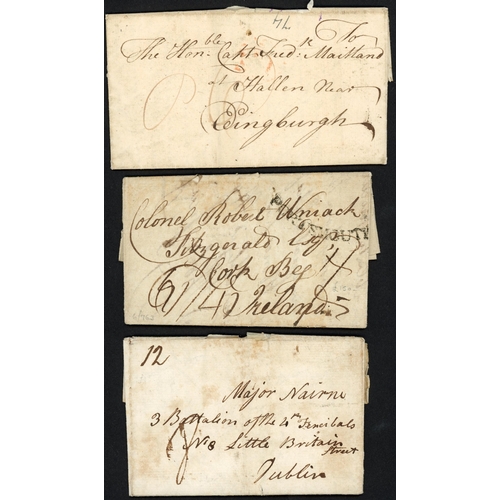 74
To
The Hon.ble Capt Fred.k Maitland
at Hallen Near
Edingburgh
Colonel Robert Uniack
Fitzgerald Esq.
Cork Beg
Ireland
12
Major Nairne
3 Battalion of the 4th Fencibals
No 8 Little Britain
Street
Dublin